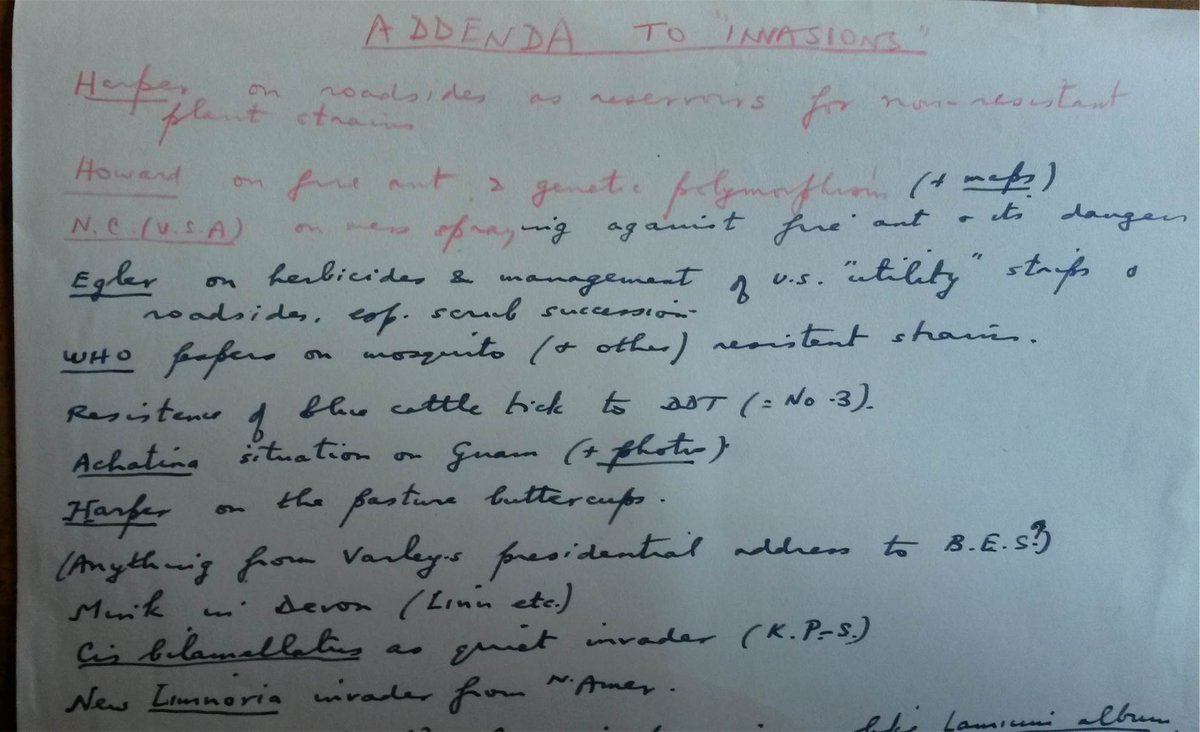 ADDENDA TO "INVASIONS"
Harper on roadsides as reservoirs for non-resistant
plant strains
Howard on fire ant & genetic polymorphism (+ maps)
N.C. (U.S.A) on mass spraying against fire ant & its dangers
Egler on herbicides & management of U.S. "utility" strips &
roadsides, esp. scrub succession.
WHO papers on mosquito (& other) resistent strains.
Resistence of blue cattle tick to DDT (= No. 3).
Achatina situation on Guam (+ photos).
Harper on the pasture buttercups.
(Anything from Varley's presidential address to B.E.S.?)
Mink in Devon (Linn etc.)
Cis bilamellatus as quiet invader (K.P-S.)
New Limnoria invader from N. Amer.
like Lamium album